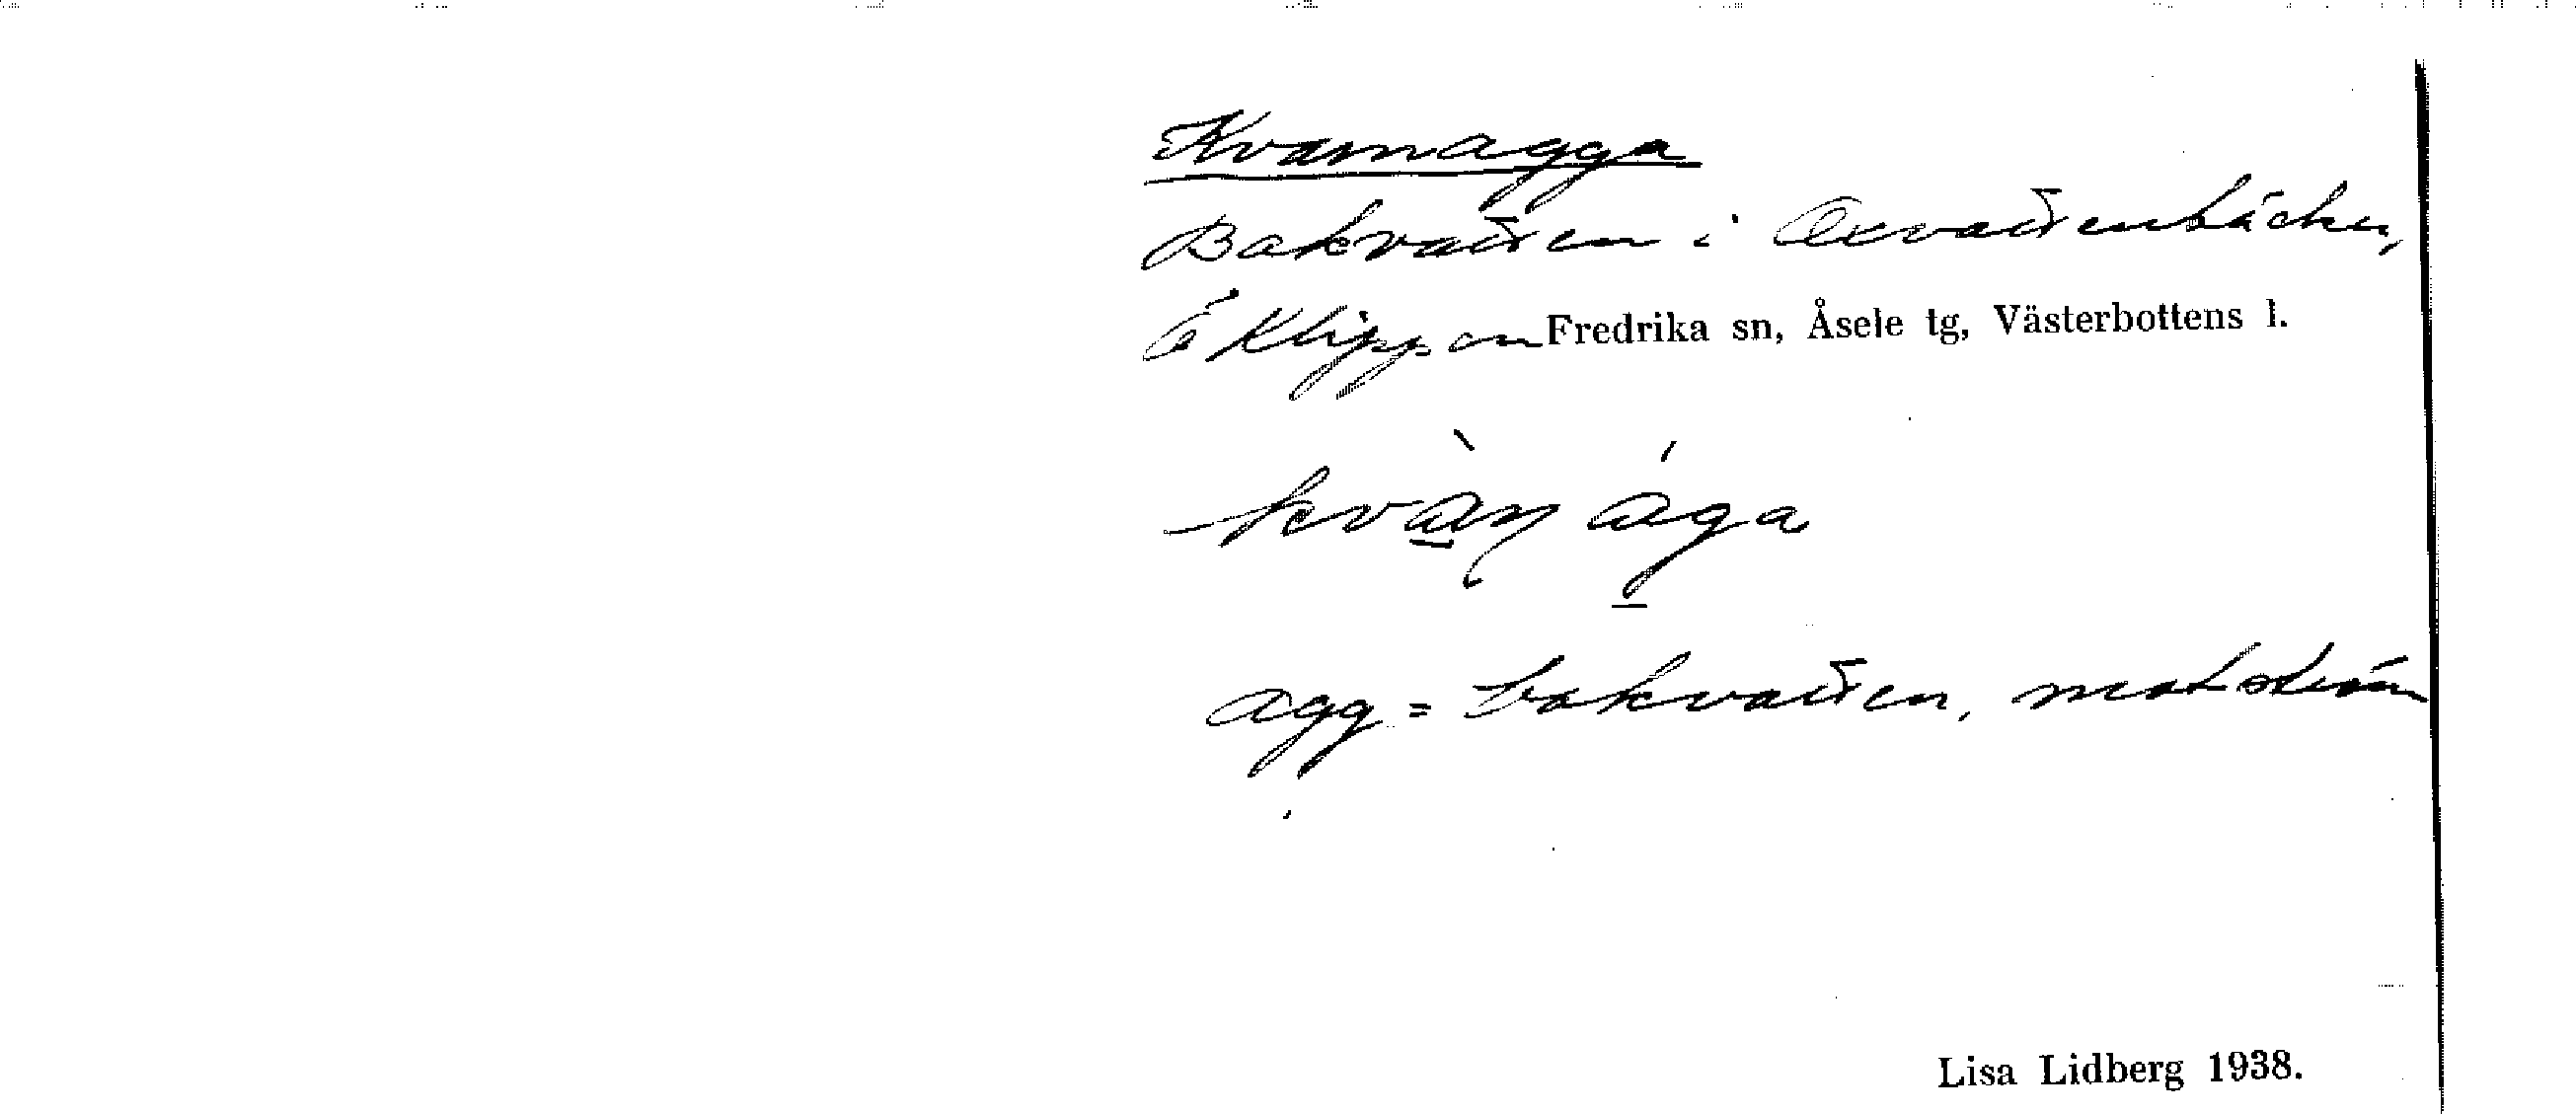 Kvarnagga
Bakvatten i Oxvattenbäcken,
Ö Klippen Fredrika sn, Åsele tg, Västerbottens l.
kvàn ága
agg = bakvatten, motström
Lisa Lidberg 1938.